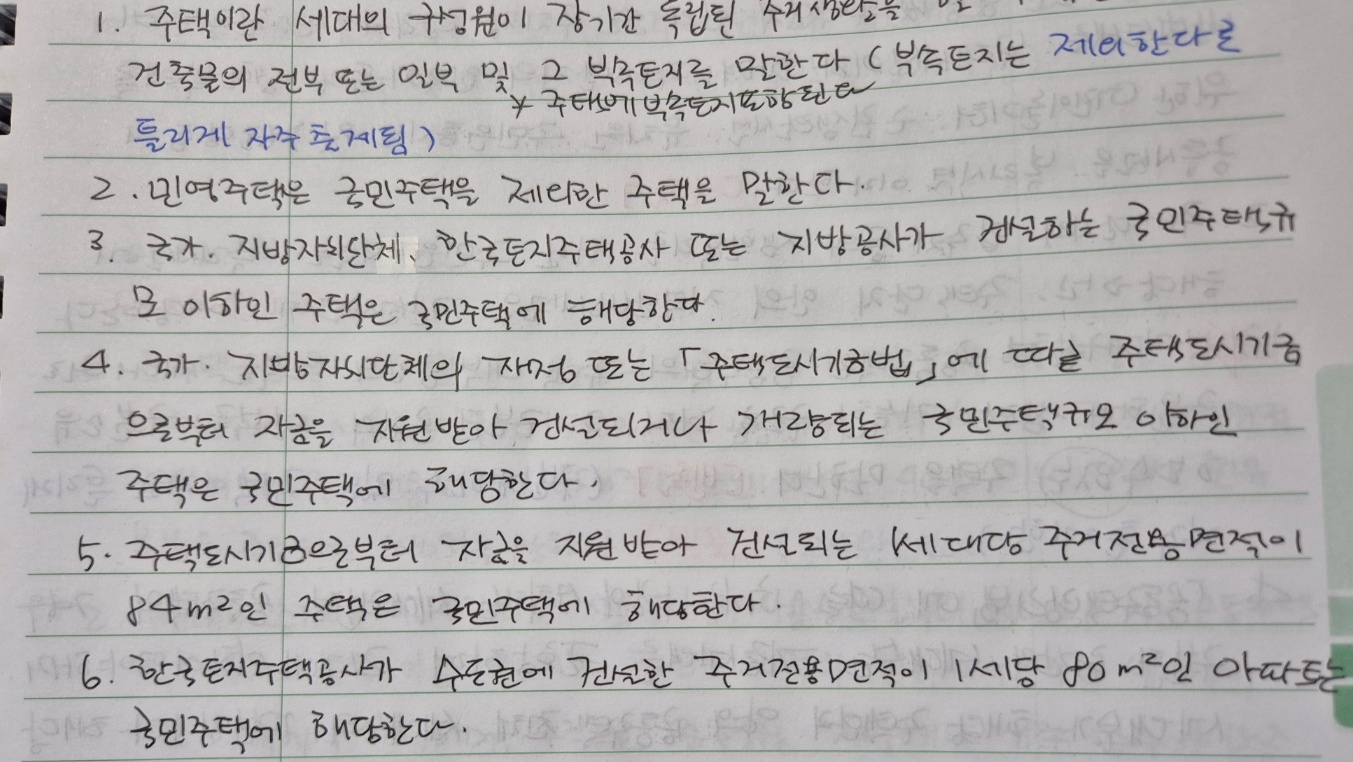 1. 주택이란 세대의 구성원이 장기간 독립된 주거생활을
건축물의 전부 또는 일부 및 그 부속토지를 말한다 (부속토지는 제외한다로
* 주택에 부속토지포함된다
틀리게 자주 출제됨)
2. 민영주택은 국민주택을 제외한 주택을 말한다.
3. 국가. 지방자치단체, 한국토지주택공사 또는 지방공사가 건설하는 국민주택규
모 이하인 주택은 국민주택에 해당한다.
4. 국가. 지방자치단체의 재정 또는 「주택도시기금법」에 따른 주택도시기금
으로부터 자금을 지원받아 건설되거나 개량되는 국민주택규모 이하인
주택은 국민주택에 해당한다.
5. 주택도시기금으로부터 자금을 지원받아 건설되는 1세대당 주거전용면적이
84m²인 주택은 국민주택에 해당한다.
6. 한국토지주택공사가 수도권에 건설한 주거전용면적이 1세당 80m²인 아파트는
국민주택에 해당한다.